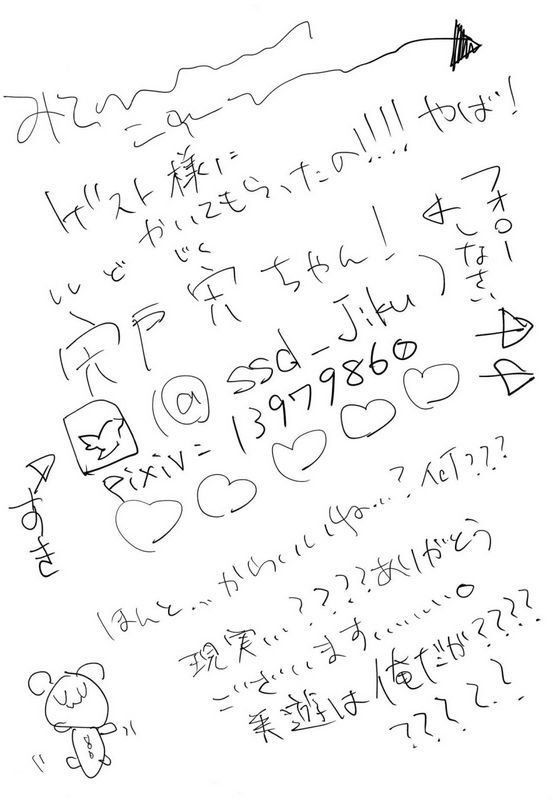 みて
これ
ゲスト様に
かいてもらったの!!!! やば!
ししど じく
宍戸 宍ちゃん!
(@ssd_Jiku)
pixiv=13979860
フォロー
よしなさい
すき
ほんと…かわいいね…?何???
現実…????ありがとう
ございます……。
美遊は俺だが????
????